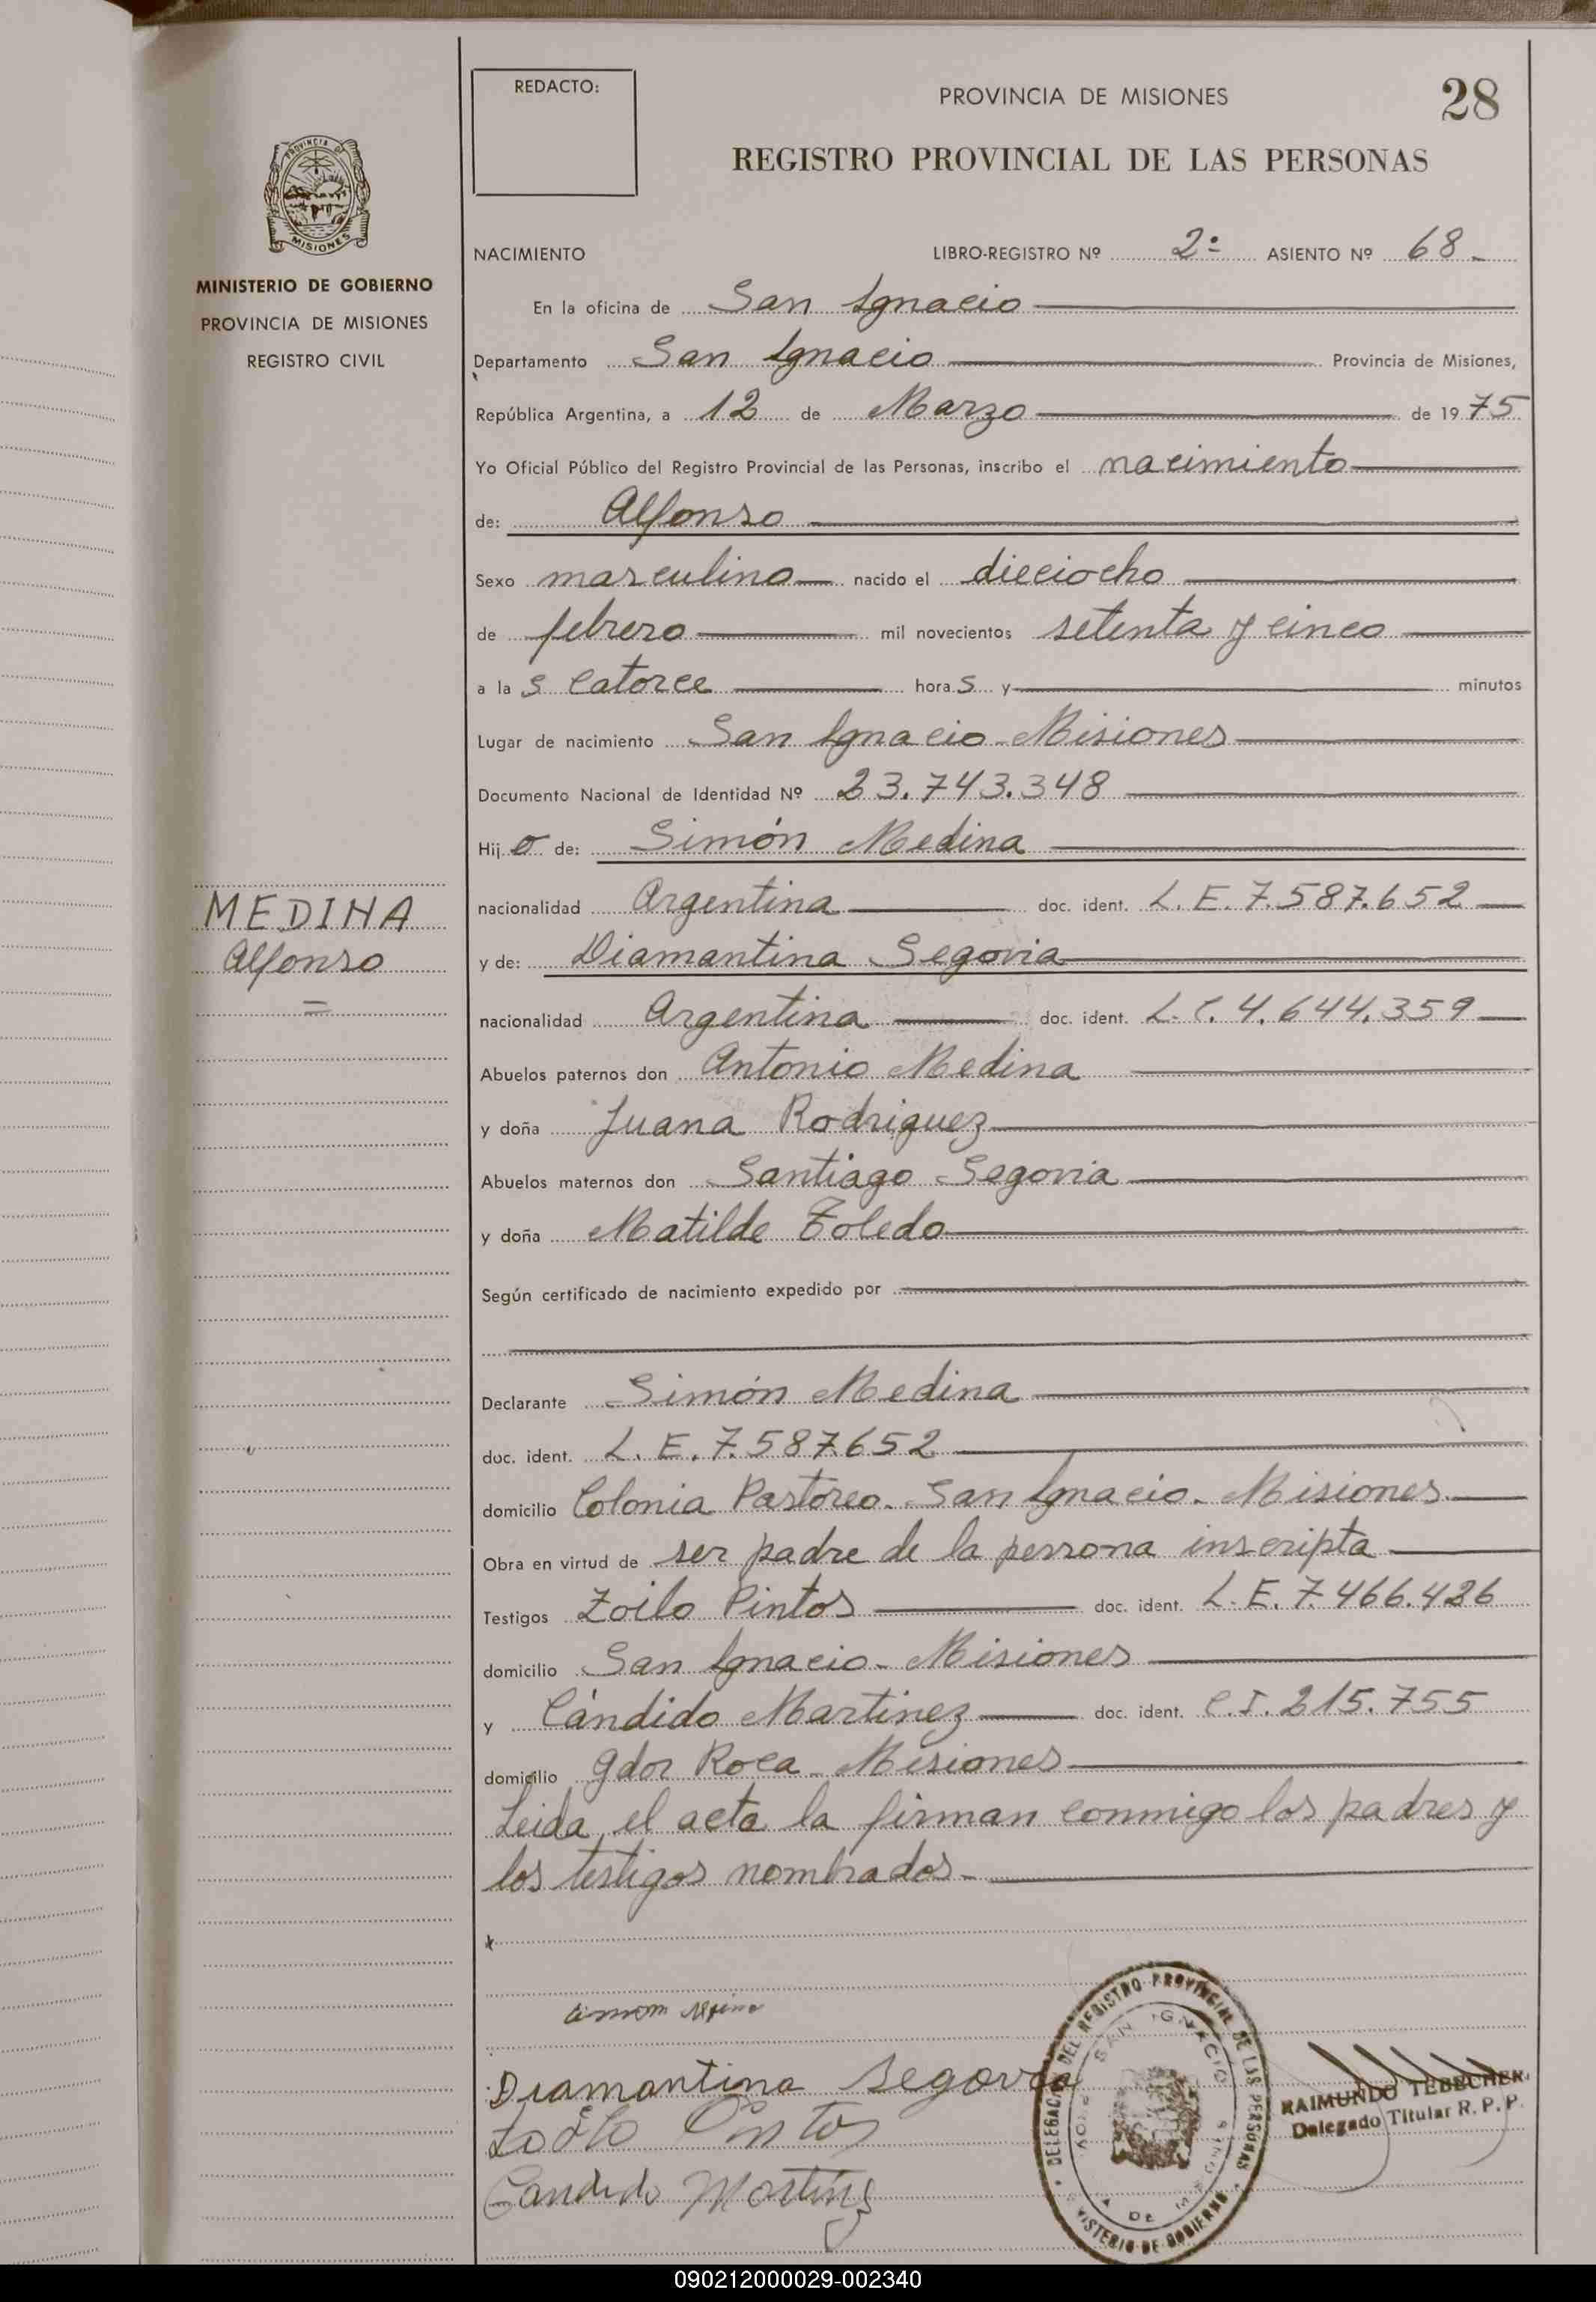 REDACTO:
PROVINCIA DE MISIONES
28
REGISTRO PROVINCIAL DE LAS PERSONAS
PROVINCIA DE
MISIONES
MINISTERIO DE GOBIERNO
PROVINCIA DE MISIONES
REGISTRO CIVIL
NACIMIENTO LIBRO-REGISTRO Nº 2º ASIENTO Nº 68
En la oficina de San Ignacio
Departamento San Ignacio Provincia de Misiones,
República Argentina, a 12 de Marzo de 1975
Yo Oficial Público del Registro Provincial de las Personas, inscribo el nacimiento
de: Alfonso
Sexo masculino nacido el dieciocho
de febrero mil novecientos setenta y cinco
a la s catorce hora s y minutos
Lugar de nacimiento San Ignacio - Misiones
Documento Nacional de Identidad Nº 23.743.348
Hij o de: Simón Medina
MEDINA
Alfonso
nacionalidad Argentina doc. ident. L. E. 7.587.652
y de: Diamantina Segovia
nacionalidad Argentina doc. ident. L. C. 4.644.359
Abuelos paternos don Antonio Medina
y doña Juana Rodriguez
Abuelos maternos don Santiago Segovia
y doña Matilde Toledo
Según certificado de nacimiento expedido por
Declarante Simón Medina
doc. ident. L. E. 7.587.652
domicilio Colonia Pastoreo - San Ignacio - Misiones
Obra en virtud de ser padre de la persona inscripta
Testigos Zoilo Pintos doc. ident. L. E. 7.466.426
domicilio San Ignacio - Misiones
y Cándido Martinez doc. ident. C. I. 215.755
domicilio Gdor Roca - Misiones
Leida el acta la firman conmigo los padres y
los testigos nombrados -
Diamantina Segovia
Zoilo Pintos
Candido Martinez
DELEGACION DEL REGISTRO PROVINCIAL DE LAS PERSONAS
SAN IGNACIO
MINISTERIO DE GOBIERNO
RAIMUNDO TEBECHERI
Delegado Titular R. P. P.
090212000029-002340